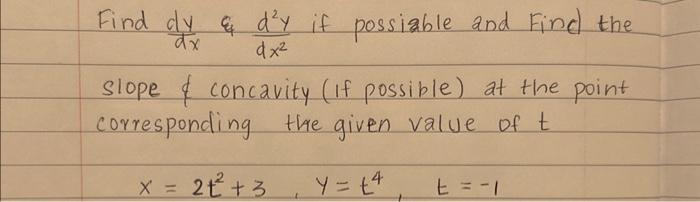 Find dy/dx & d²y/dx² if possiable and Find the
slope & concavity (if possible) at the point
corresponding the given value of t
x = 2t² + 3 , y = t⁴ , t = -1